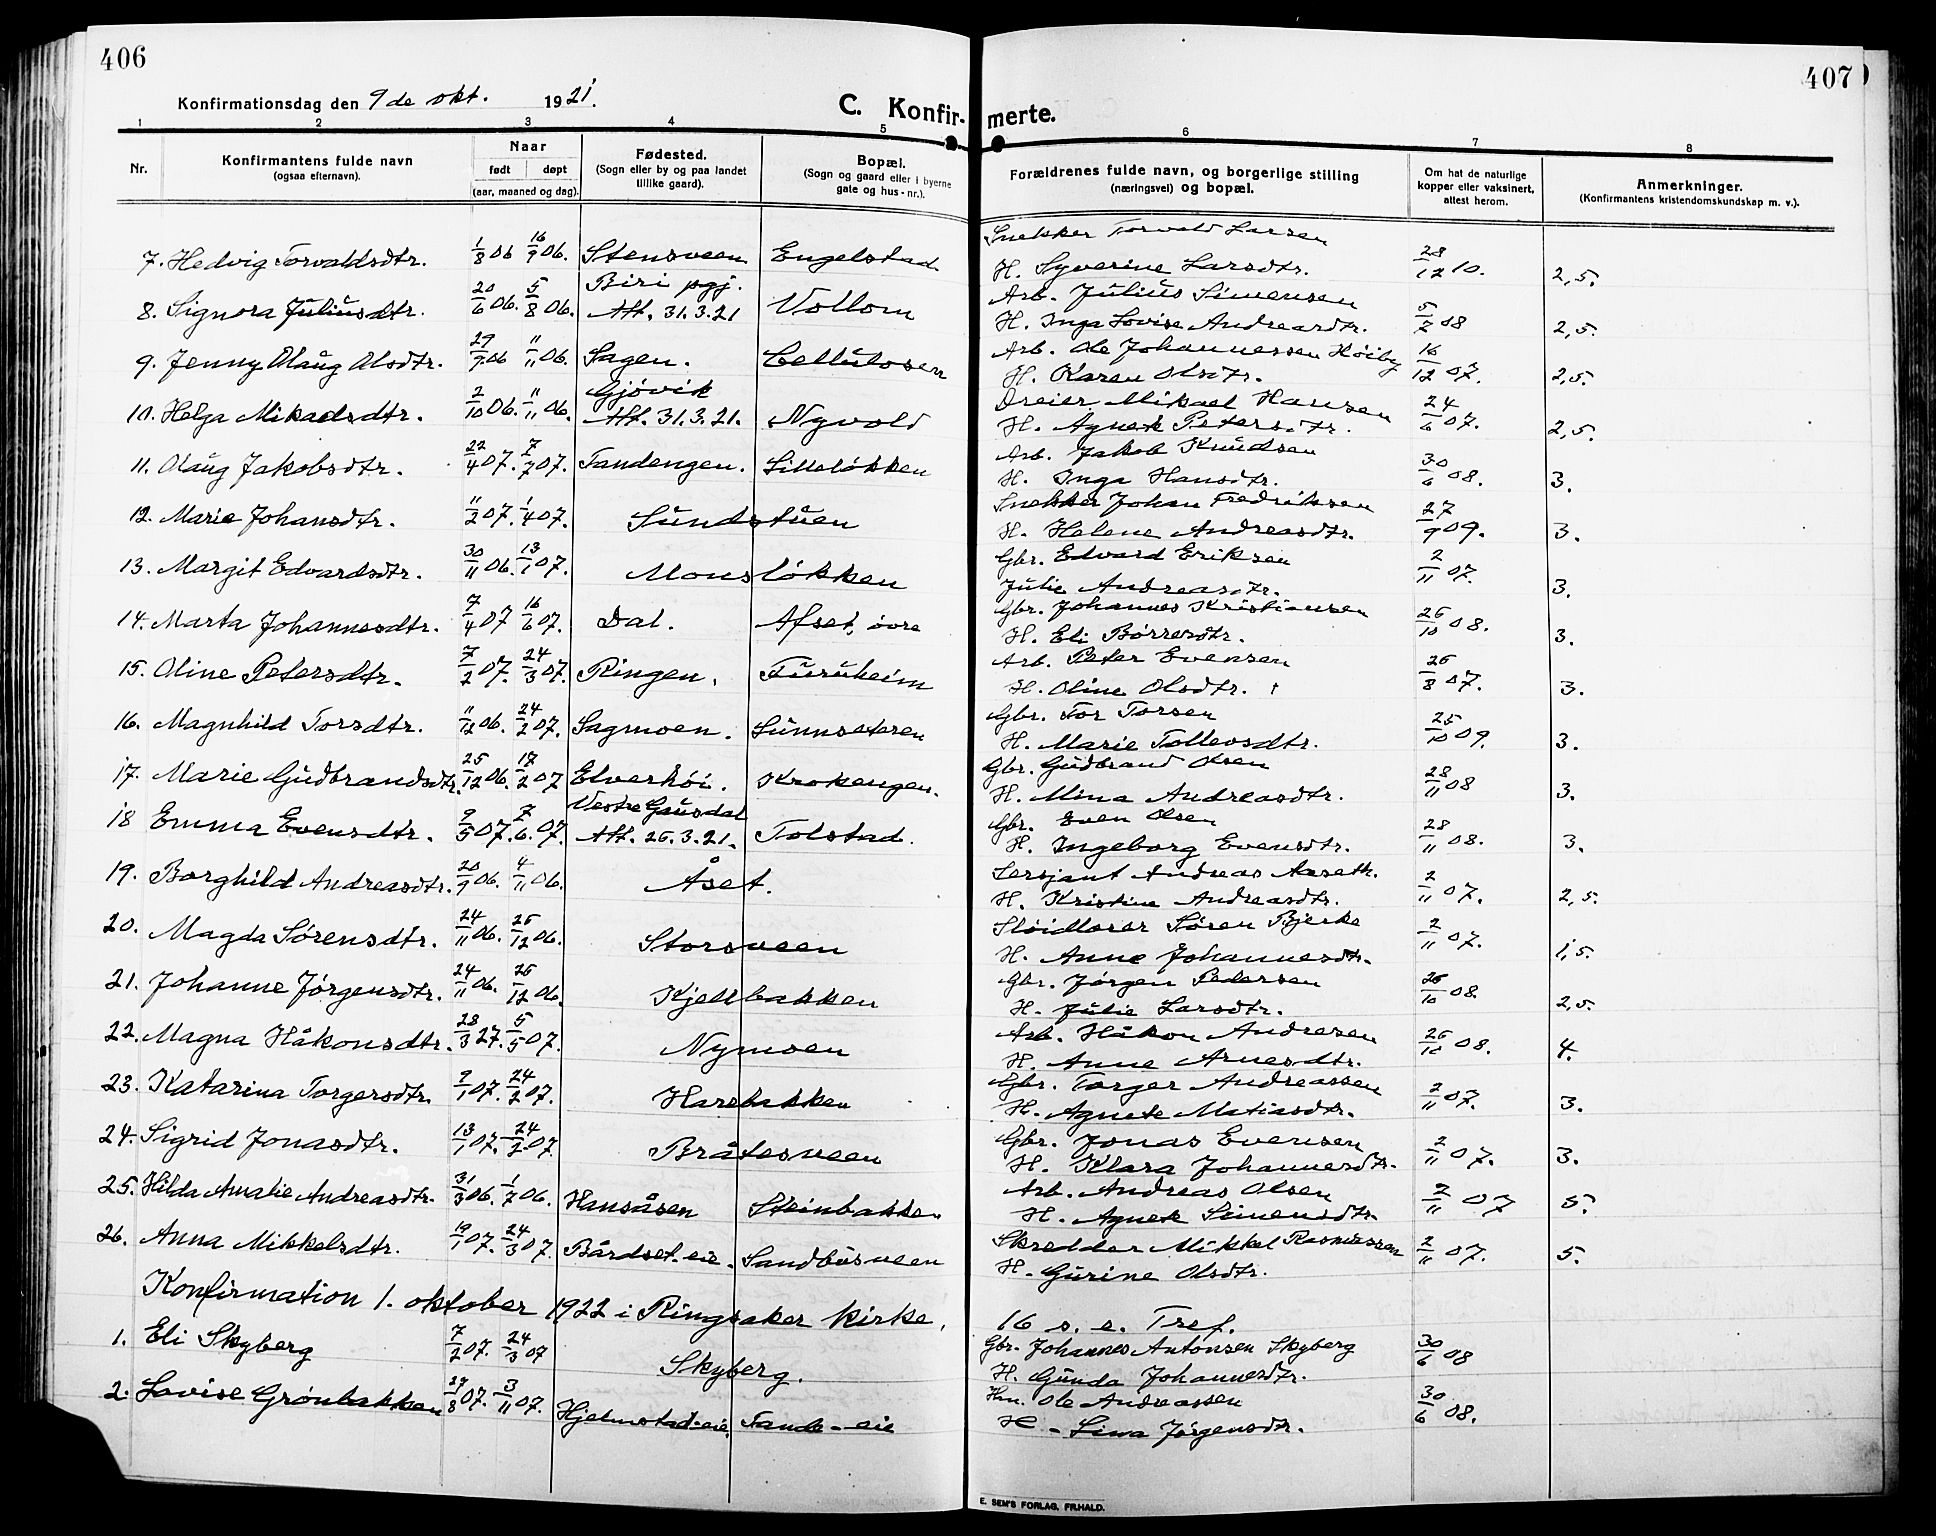 406
407
Konfirmationsdag den 9de okt. 1921.
C. Konfir-merte.
1 2 3 4 5 6 7 8
Nr.
Konfirmantens fulde navn
(ogsaa efternavn).
Naar
født døpt
(aar, maaned og dag).
Fødested.
(Sogn eller by og paa landet
tillike gaard).
Bopæl.
(Sogn og gaard eller i byerne
gate og hus-nr.).
Forældrenes fulde navn, og borgerlige stilling
(næringsvei) og bopæl.
Om hat de naturlige
kopper eller vaksinert,
attest herom.
Anmerkninger.
(Konfirmantens kristendomskundskap m. v.).
Snekker Torvald Larsen
7. Hedvig Torvaldsdtr. 1/8 06 16/9 06. Stensveen Engelstad H. Syverine Larsdtr. 28/12 10. 2,5.
Biri pgj. Arb. Julius Simensen
8. Signora Juliusdtr. 20/6 06. 5/8 06. Att. 31.3.21 Vollom H. Inga Lovise Andreasdtr. 5/7 08 2,5.
Arb. Ole Johannessen Höiby
9. Jenny Olaug Olsdtr. 29/9 06 11/11 06. Sagen. Cellulosen H. Karen Olsdtr. 16/12 07. 2,5.
Gjövik Dreier Mikael Hansen
10. Helga Mikaelsdtr. 2/10 06. 11/11 06. Att. 31.3.21. Nyvold H. Agnete Petersdtr. 24/6 07. 2,5.
Arb. Jakob Knudsen
11. Olaug Jakobsdtr. 22/4 07. 7/7 07. Tandengen. Lillelökken H. Inga Hansdtr. 30/6 08. 3.
Snekker Johan Fredriksen
12. Marie Johansdtr. 11/2 07. 1/4 07. Sundstuen H. Helene Andreasdtr. 27/9 09. 3.
Gbr. Edvard Eriksen
13. Margit Edvardsdtr. 30/11 06. 13/1 07. Monslökken Julie Andreasdtr. 2/11 07. 3.
Gbr. Johannes Kristiansen
14. Marta Johannesdtr. 7/4 07 16/6 07. Dal. Afset, övre H. Eli Börresdtr. 26/10 08. 3.
Arb. Peter Evensen
15. Oline Petersdtr. 7/2 07. 24/3 07. Ringen. Furuheim H. Oline Olsdtr. † 26/8 07. 3.
Gbr. Tor Torsen
16. Magnhild Torsdtr. 11/12 06. 24/2 07. Sagmoen. Sünnseteren H. Marie Tollevsdtr. 25/10 09. 3.
Gbr. Gudbrand Olsen
17. Marie Gudbrandsdtr. 25/12 06. 17/2 07 Elverhöi. Krokengen. H. Mina Andreasdtr. 28/11 08 3.
Vestre Gausdal Gbr. Even Olsen
18 Emma Evensdtr. 9/5 07. 7/6. 07. Att. 26.3.21. Tolstad. H. Ingeborg Evensdtr. 28/11 08. 3.
Sersjant Andreas Aaseth.
19. Borghild Andreasdtr. 20/9 06. 4/11 06. Åset. H. Kristine Andreasdtr. 2/11 07. 2,5.
Slöidlærer Søren Bjerke
20. Magda Sörensdtr. 24/11 06. 26/12 06. Storsveen H. Anne Johannesdtr. 2/11 07. 1,5.
Gbr. Jørgen Pedersen
21. Johanne Jørgensdtr. 24/11 06. 26/12 06. Kjelsbakken H. Julie Larsdtr. 26/10 08. 2,5.
Arb. Håkon Andresen
22. Magna Håkonsdtr. 28/3 27. 5/5 07. Nymoen H. Anne Arnesdtr. 26/10 08. 4.
Gbr. Torger Andreassen
23. Katarina Torgersdtr. 2/1 07. 24/2 07. Harebakken H. Agnete Matiasdtr. 2/11 07. 3.
Gbr. Jonas Evensen
24. Sigrid Jonasdtr. 13/1 07. 24/2 07 Bråtesveen H. Klara Johannesdtr. 2/11 07. 3.
Arb. Andreas Olsen
25. Hilda Amalie Andreasdtr. 31/3 06. 1/7 06. Hansåsen Steinbakken H. Agnete Simensdtr. 2/11 07 5.
Skredder Mikkel Rasmussen
26. Anna Mikkelsdtr. 19/1 07. 24/3 07. Bårdset-eie. Sandbusveen H. Gurine Olsdtr. 2/11 07. 5.
Konfirmation 1. oktober 1922 i Ringsaker kirke, 16 s. e. Tref.
Gbr. Johannes Antonsen Skyberg
1. Eli Skyberg 7/2 07. 24/3 07 Skyberg. H. Gunda Johannesdtr. 30/6 08
Hm. Ole Andreassen
2. Lovise Grönbakken 27/8 07. 3/11 07. Hjelmstad-eie. Tande-eie H - Lina Jørgensdtr. 30/6 08.
E. SEM'S FORLAG, FR.HALD.